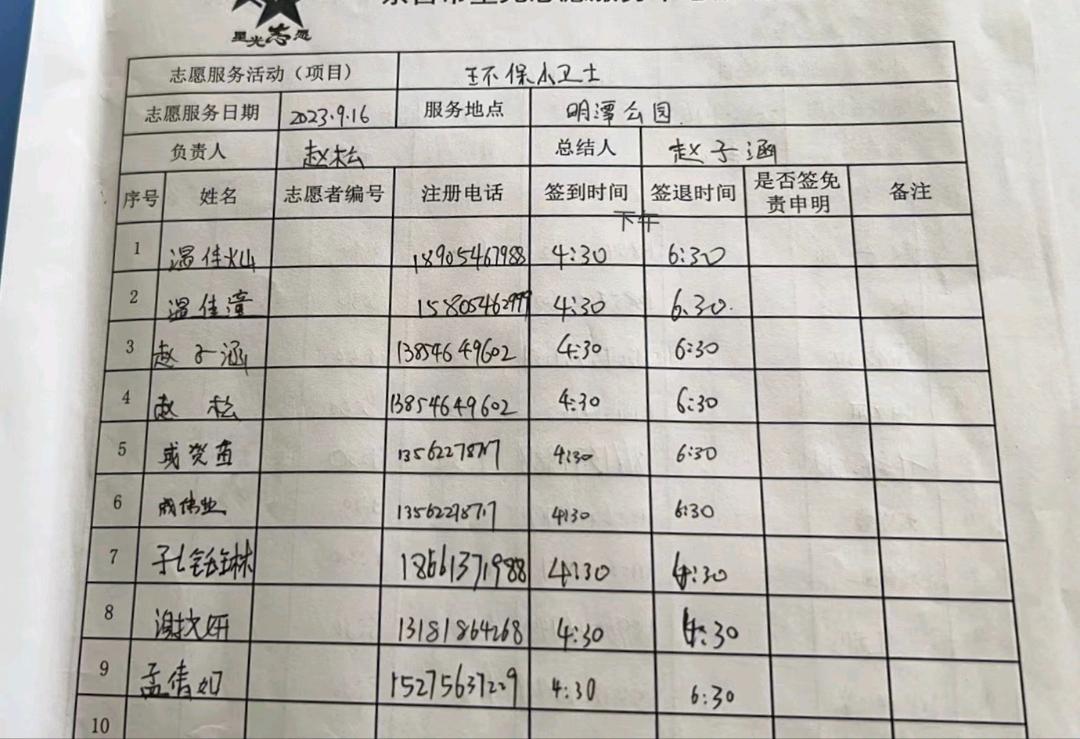 星光志愿
志愿服务活动（项目） 环保小卫士
志愿服务日期 2023.9.16 服务地点 明潭公园
负责人 赵松 总结人 赵子涵
序号 姓名 志愿者编号 注册电话 签到时间 签退时间 是否签免责申明 备注
下午
1 温佳灿 18905467988 4:30 6:30
2 温佳潼 15805462999 4:30 6.30.
3 赵子涵 13854649602 4:30 6:30
4 赵松 13854649602 4:30 6:30
5 4:30 6:30
6 成伟业 4:30 6:30
7 18661371988 4:30 6:30
8 谢文妍 13181864268 4:30 6:30
9 孟倩如 15275637229 4:30 6:30
10